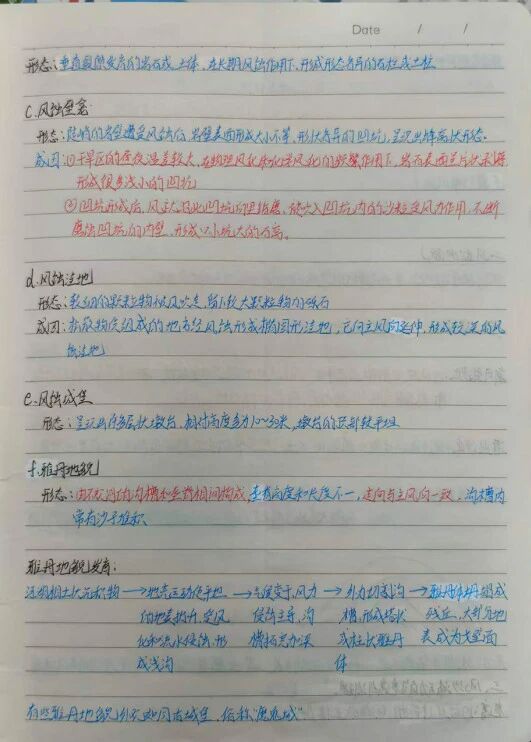 Date / /
形态:垂直裂隙发育的岩石或土体,在长期风蚀作用下,形成形态各异的石柱或土柱
C.风蚀壁龛
形态:陡峭的岩壁遭受风蚀后,岩壁表面形成大小不等,形状各异的凹坑,呈现出蜂窝状形态.
成因:①干旱区的昼夜温差较大,在物理风化和化学风化的频繁作用下,岩石表面呈片状剥落
形成很多浅小的凹坑
②凹坑形成后,风在凹坑内,被卷入凹坑内的沙粒受风力作用,不断
磨蚀凹坑的内壁,形成口小坑大的石窝。
d.风蚀洼地
形态:较细的颗粒物被风吹走,留下较大颗粒物的砾石
成因:松散物质组成的地方经风蚀形成椭圆形洼地,它向主风向延伸,形成较宽的风
蚀洼地
e.风蚀城堡
形态:呈现出层状墩台,相对高度多为10~30米,墩台的顶部较平坦
f.雅丹地貌
形态:由不规则的沟槽和垄脊相间构成,垄脊高度和长度不一,走向与主风向一致,沟槽内
常有沙子堆积
雅丹地貌发育:
湖相粘土状沉积物 → 地壳运动使平坦 → 气候变干,风力 → 外力切割沟 → 雅丹体坍塌成
的地表抬升,受风 侵蚀主导,沟 槽,形成塔状 残丘,大部分地
化和流水侵蚀,形 槽拓宽加深 或柱状雅丹 表成为戈壁面
成浅沟 体
有些雅丹地貌外形如同古城堡,俗称"魔鬼城"